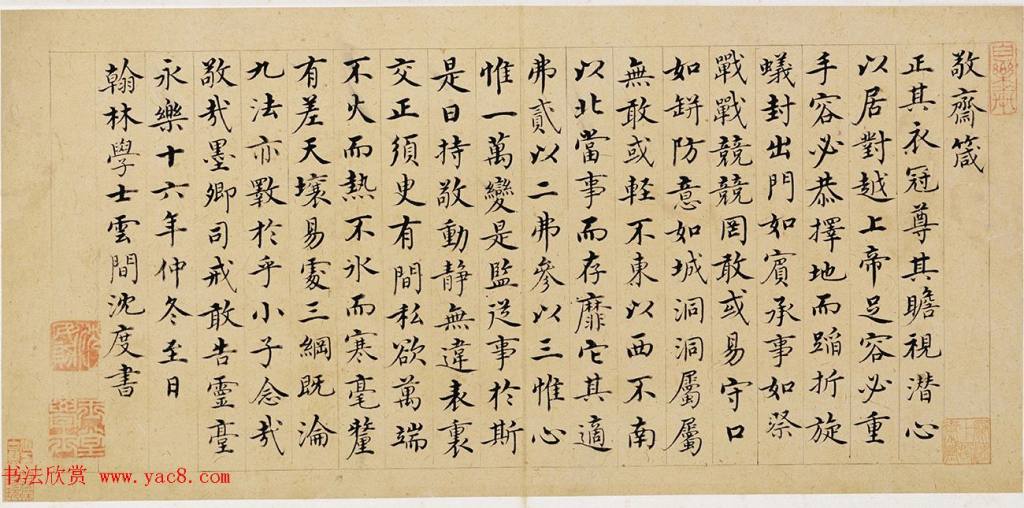 敬齋箴
正其衣冠尊其瞻視潜心
以居對越上帝足容必重
手容必恭擇地而蹈折旋
蟻封出門如賓承事如祭
戰戰競競罔敢或易守口
如缾防意如城洞洞屬屬
無敢或軽不東以西不南
以北當事而存靡它其適
弗貳以二弗參以三惟心
惟一萬變是監从事於斯
是曰持敬動静無違表裏
交正須臾有間私欲萬端
不火而熱不氷而寒毫釐
有差天壤易處三綱既淪
九法亦斁於乎小子念㢤
敬㢤墨卿司戒敢告靈臺
永樂十六年仲冬至日
翰林學士雲間沈度書
书法欣赏 www.yac8.com